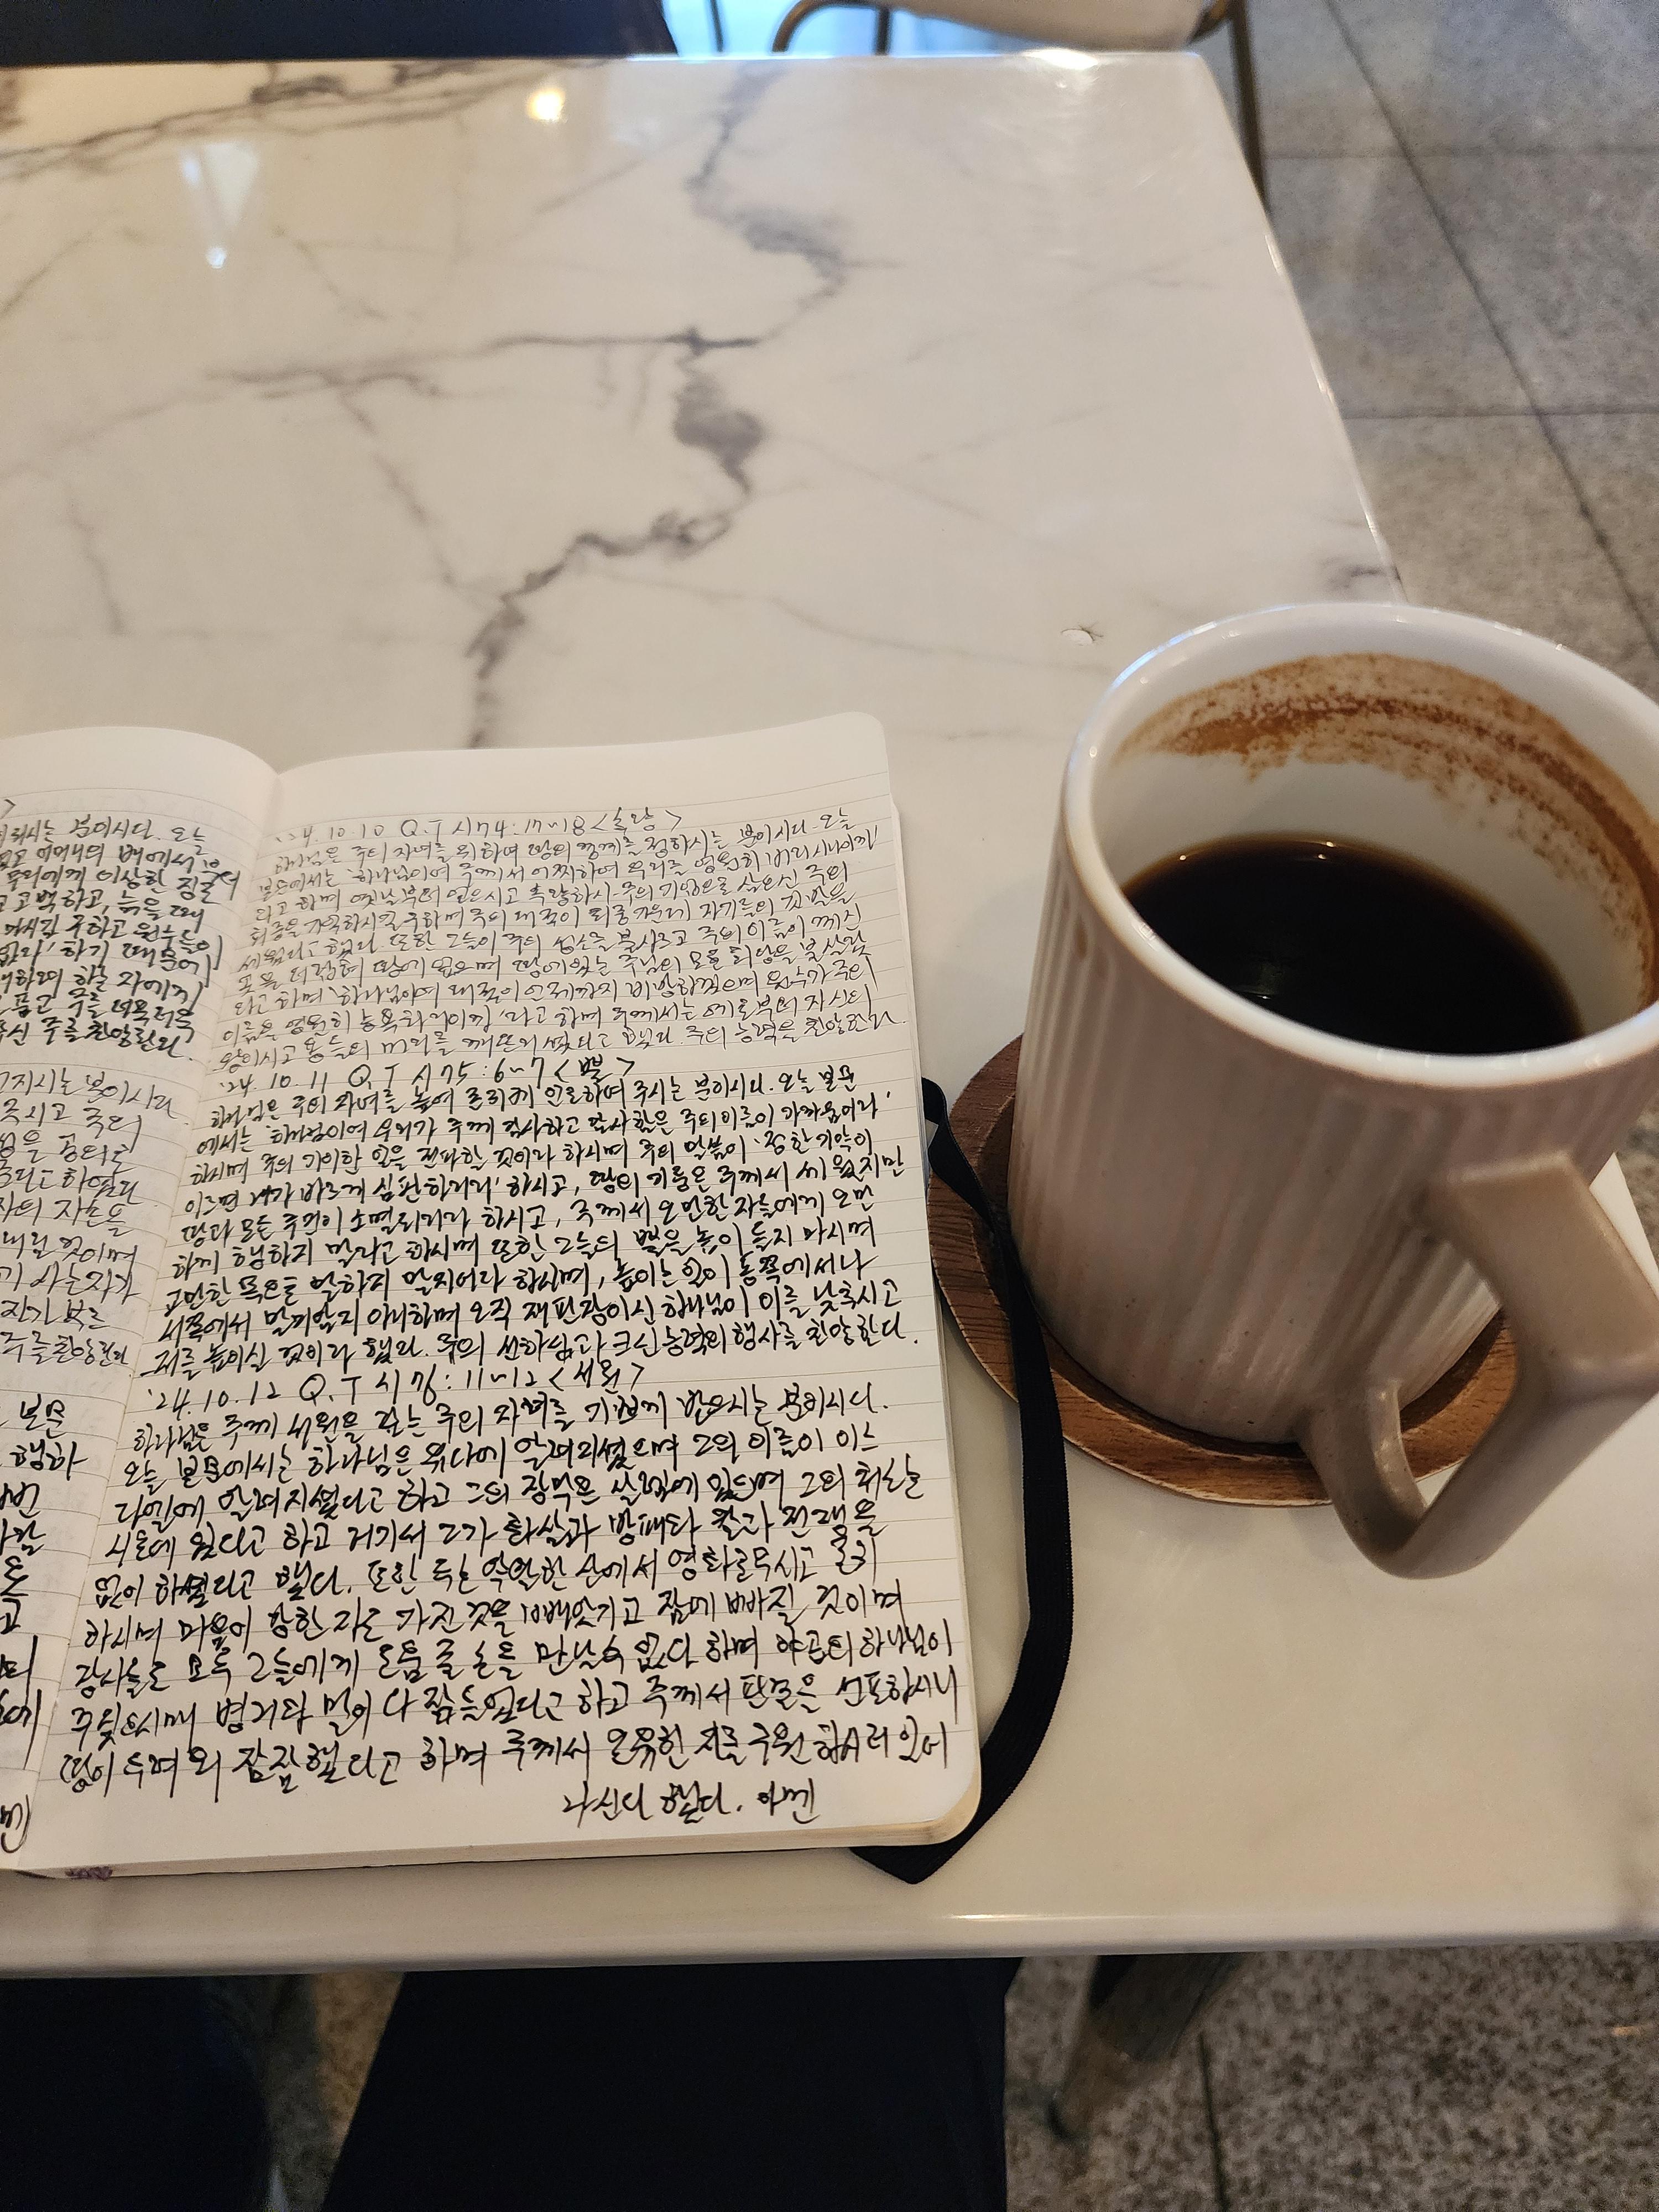 되시는 분이시다. 오늘
어머니의 배에서
우리에게 이상한 징조
고 고백하고, 늙을 때
마시길 구하고 원수들이
하기 때문에
하려 하는 자에게
품고 주를 더욱더욱
주를 찬양한다.
가지시는 분이시다
주시고 주의
자의 자손들
내릴 것이며
주를 찬양한다
본문
행하
'24.10.10 Q.T 시74:17~18 <축량>
하나님은 주의 자녀를 위하여 땅의 경계를 정하시는 분이시다. 오늘
본문에서는 '하나님이여 주께서 어찌하여 우리를 영원히 버리시나이까'
라고 하며 옛날부터 얻으시고 속량하사 주의 기업으로 삼으신 주의
회중을 기억하시길 구하며 주의 대적이 회중 가운데 자기들의 깃발을
세웠다고 했다. 또한 그들이 주의 성소를 불사르고 주의 이름이 계신
곳을 더럽혀 땅에 엎으며 땅에 있는 주님의 모든 회당을 불살랐
다고 하며 '하나님이여 대적이 언제까지 비방하겠으며 원수가 주의
이름을 영원히 능욕하리이까'라고 하며 주께서는 예로부터 자신의
왕이시고 용들의 머리를 깨뜨리셨다고 했다. 주의 능력을 찬양한다.
'24.10.11 Q.T 시75:6~7 <뿔>
하나님은 주의 자녀를 높여 존귀케 인도하여 주시는 분이시다. 오늘 본문
에서는 '하나님이여 우리가 주께 감사하고 감사함은 주의 이름이 가까움이라'
하시며 주의 기이한 일을 전파할 것이라 하시며 주의 말씀이 '정한 기약이
이르면 내가 바르게 심판하리라' 하시고, 땅의 기둥은 주께서 세웠지만
땅과 모든 주민이 소멸되리라 하시고, 주께서 오만한 자들에게 오만
하게 행하지 말라고 하시며 또한 그들의 뿔을 높이 들지 마시며
교만한 목으로 말하지 말지어다 하시며, 높이는 일이 동쪽에서나
서쪽에서 말미암지 아니하며 오직 재판장이신 하나님이 이를 낮추시고
저를 높이실 것이라 했다. 주의 선하심과 크신 능력의 행사를 찬양한다.
'24.10.12 Q.T 시76:11~12 <서원>
하나님은 주께 서원을 갚는 주의 자녀를 기쁘게 받으시는 분이시다.
오늘 본문에서는 하나님은 유다에 알려지셨으며 그의 이름이 이스
라엘에 알려지셨다고 하고 그의 장막은 살렘에 있으며 그의 처소는
시온에 있다고 하고 거기서 그가 화살과 방패와 칼과 전쟁을
없이 하셨다고 했다. 또한 주는 약탈한 산에서 영화로우시고 존귀
하시며 마음이 강한 자는 가진 것을 빼앗기고 잠에 빠질 것이며
장사들도 모두 그들에게 도움 줄 손을 만날 수 없다 하며 야곱의 하나님이
꾸짖으시매 병거와 말이 다 잠들었다고 하고 주께서 판결을 선포하시니
땅이 두려워 잠잠했다고 하며 주께서 온유한 자를 구원하시러 일어
나신다 했다. 아멘